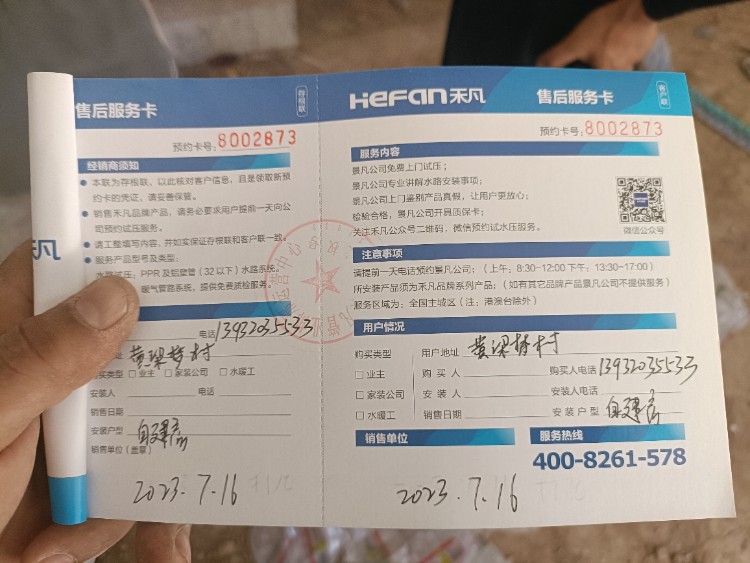 售后服务卡
存根联
预约卡号:8002873
经销商须知
本联为存根联，以此核对客户信息，且是领取新预
约卡的凭证，请妥善保管。
销售禾凡品牌产品，请务必要求用户提前一天向公
司预约试压服务。
请工整填写内容，并如实保证存根联和客户联一致。
服务产品型号及类型:
水路试压：PPR及铝塑管（32以下）水路系统。
暖气管路系统，提供免费质检服务。
禾凡
电话 13932035533
黄梁梦村
购买类型 □业主 □家装公司 □水暖工
安装人 电话
销售日期
安装户型 自建房
销售单位（盖章）
2023.7.16
HeFan禾凡 售后服务卡
客户联
预约卡号:8002873
服务内容
景凡公司免费上门试压；
景凡公司专业讲解水路安装事项；
景凡公司上门鉴别产品真假，让用户更放心；
检验合格，景凡公司开具质保卡；
关注禾凡公众号二维码，微信预约试水压服务。
微信公众号
注意事项
请提前一天电话预约景凡公司：（上午：8:30-12:00 下午：13:30-17:00）
所安装产品须为禾凡品牌系列产品；（如有其它品牌产品景凡公司不提供服务）
服务区域为：全国主城区（注：港澳台除外）
用户情况
购买类型 用户地址 黄梁梦村
□业主 购买人 购买人电话 13932035533
□家装公司 安装人 安装人电话
□水暖工 销售日期 安装户型 自建房
销售单位 服务热线
400-8261-578
2023.7.16